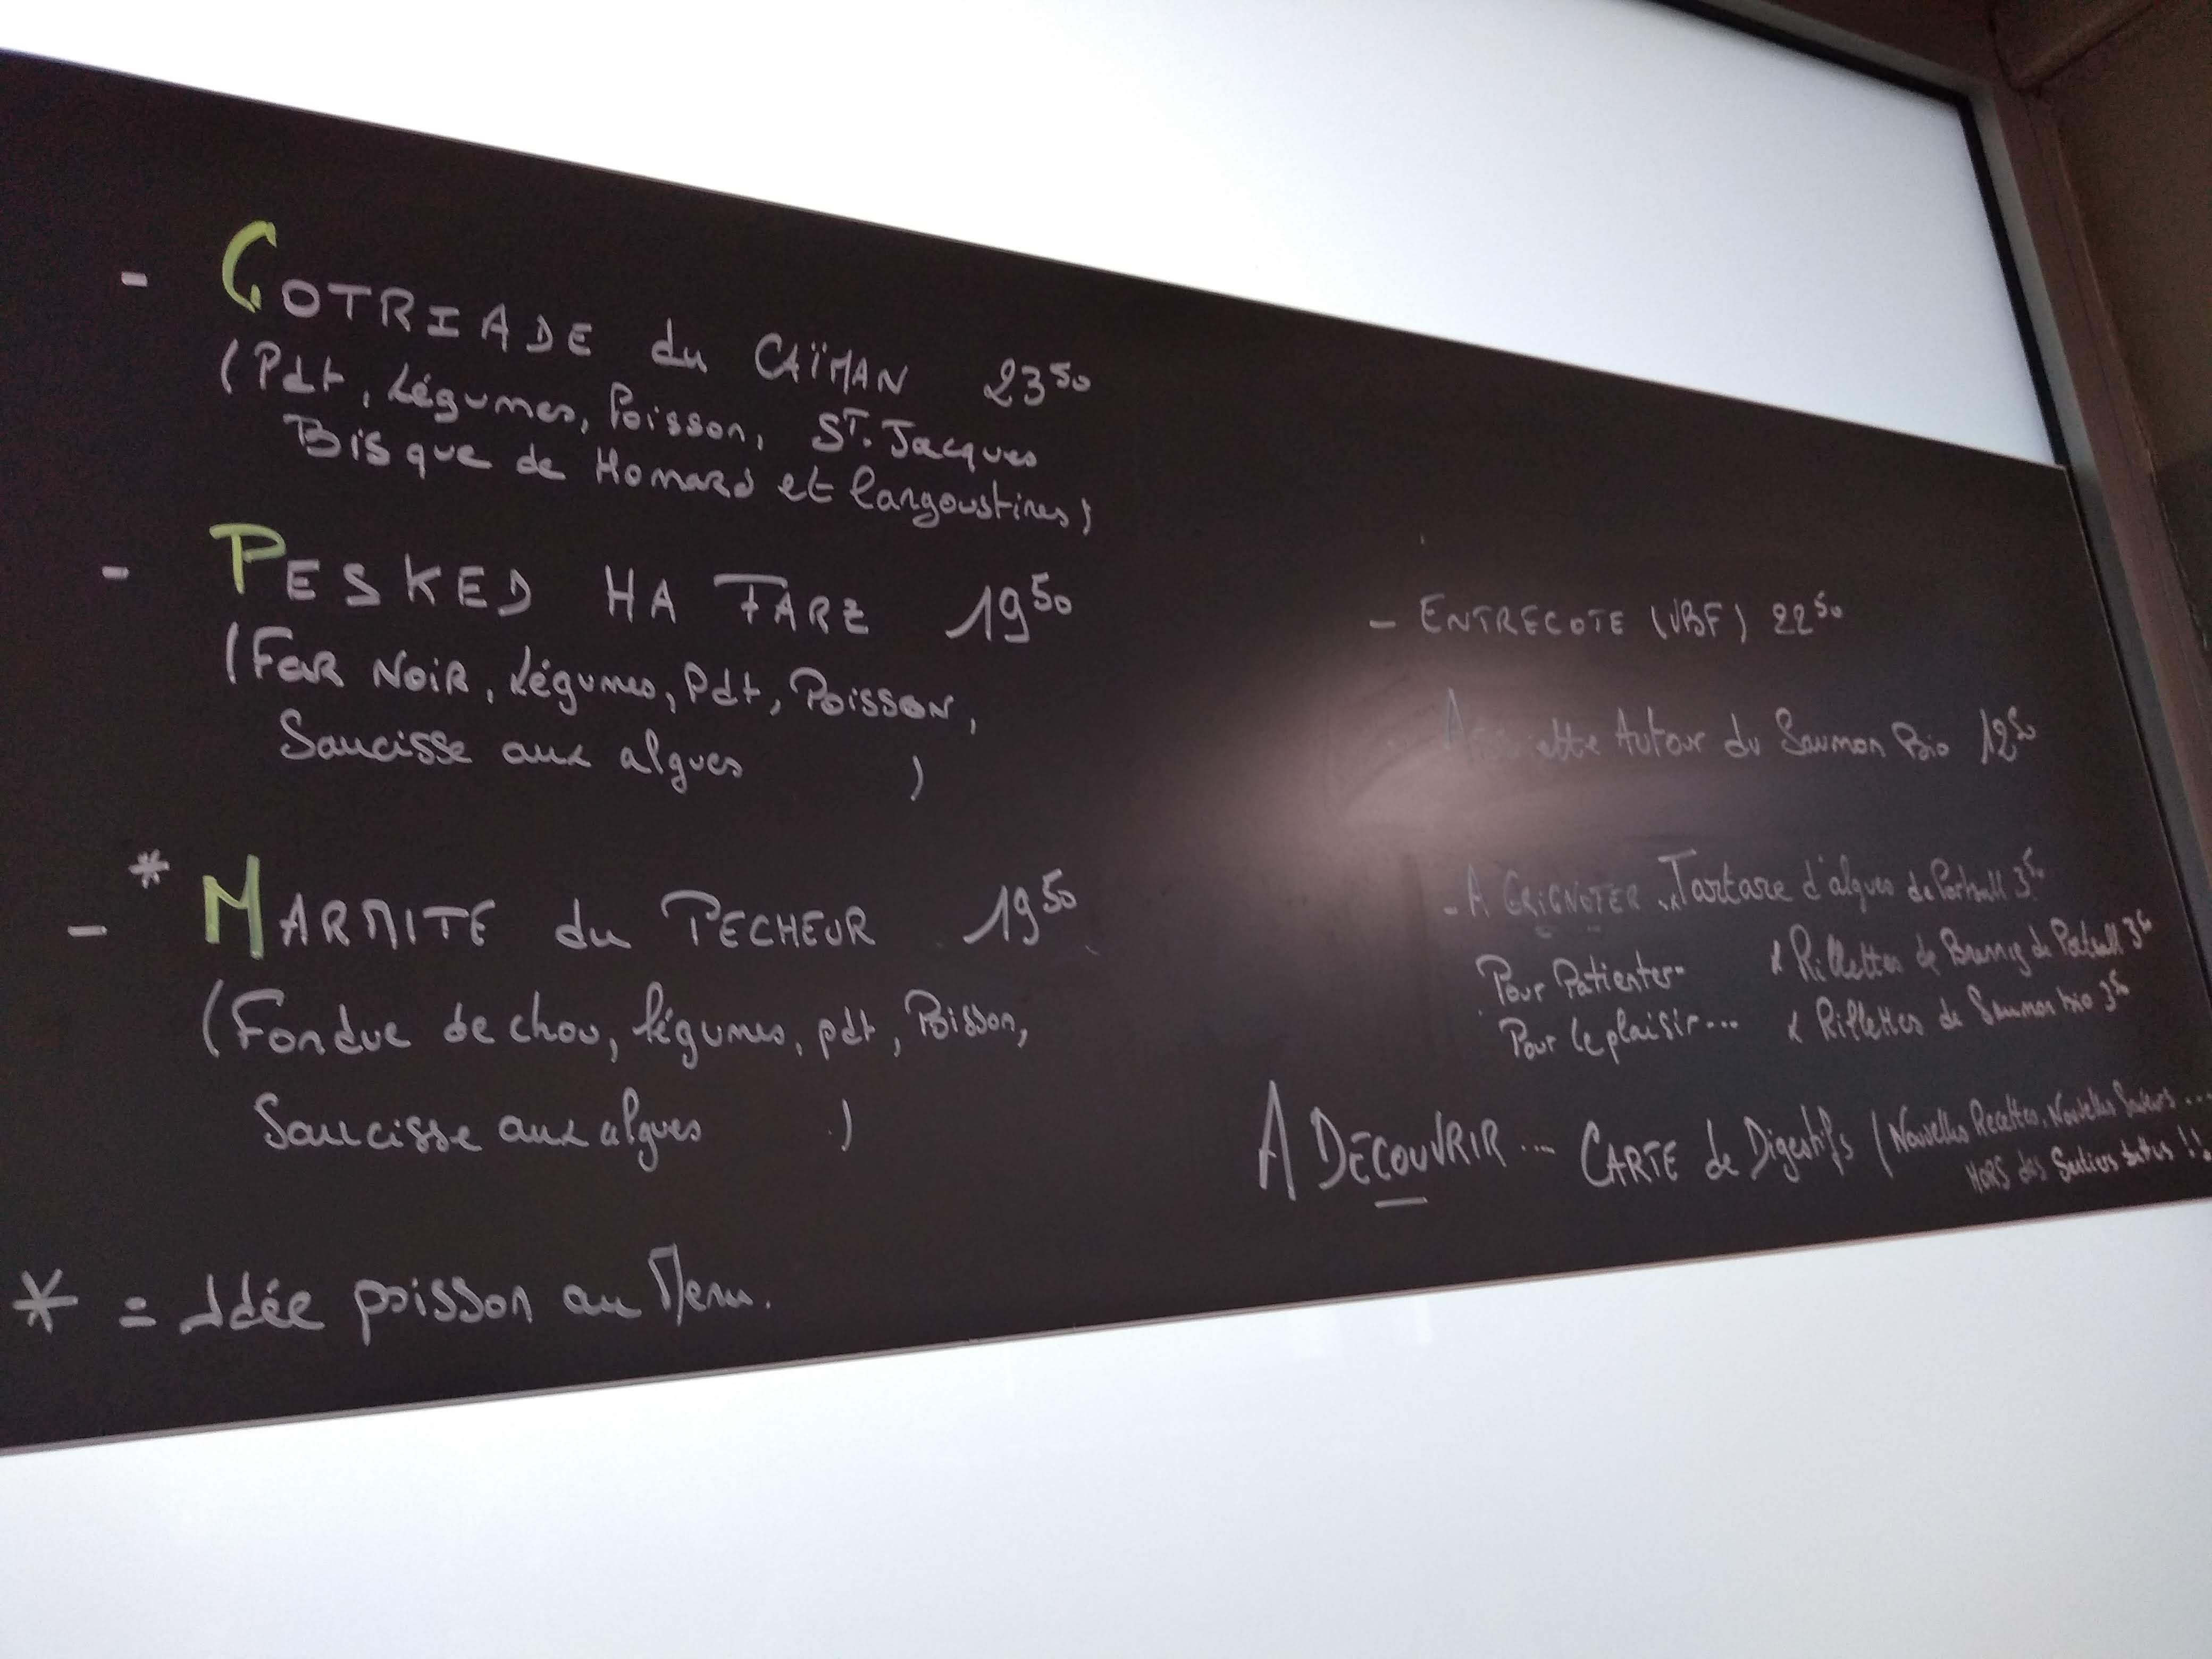 - COTRIADE du CAÏMAN 23⁵⁰
(Pdt, Légumes, Poisson, ST. Jacques
Bisque de Homard et langoustines)
- PESKED HA FARZ 19⁵⁰
(FAR NOIR, Légumes, Pdt, Poisson,
Saucisse aux algues )
*
- MARMITE du PECHEUR 19⁵⁰
(Fondue de chou, légumes, pdt, Poisson,
Saucisse aux algues )
* = Idée poisson au Menu.
- ENTRECOTE (VBF) 22⁵⁰
Assiette Autour du Saumon Bio 12⁵⁰
- A GRIGNOTER .. Tartare d'algues de Portsall 3⁵⁰
Pour Patienter- x Rillettes de Brennig de Portsall 3⁵⁰
Pour le plaisir... x Rillettes de Saumon bio 3⁵⁰
A DECOUVRIR ... CARTE de Digestifs (Nouvelles Recettes, Nouvelles Saveurs ...
HORS des Sentiers battus !!